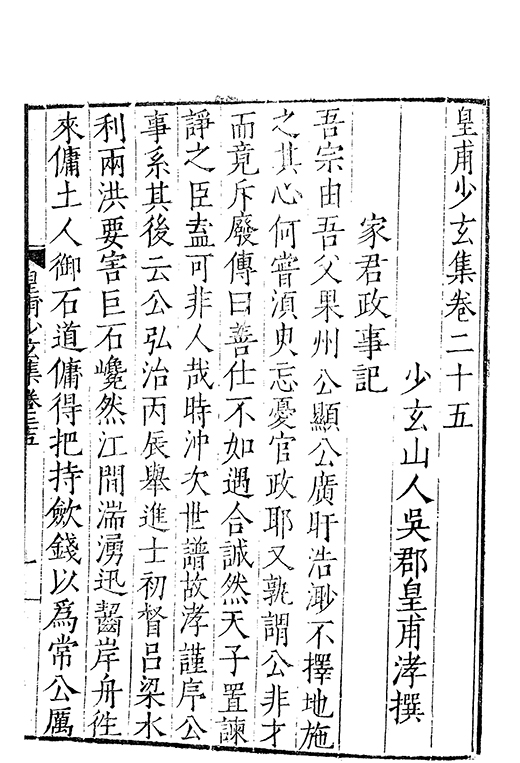 皇甫少玄集卷二十五
少玄山人吳郡皇甫涍撰
家君政事記
吾宗由吾父果州公顯公廣盱浩渺不擇地施
之其心何嘗湏臾忘憂官政耶又孰謂公非才
而竟斥廢傳曰善仕不如遇合誠然天子置諫
諍之臣盍可非人哉時沖次世譜故涍謹序公
事系其後云公弘治丙辰舉進士初督呂梁水
利兩洪要害巨石巉然江間湍湧迅齧岸舟徃
來傭土人御石道傭得把持歛錢以爲常公厲
皇甫少玄集卷二五
一